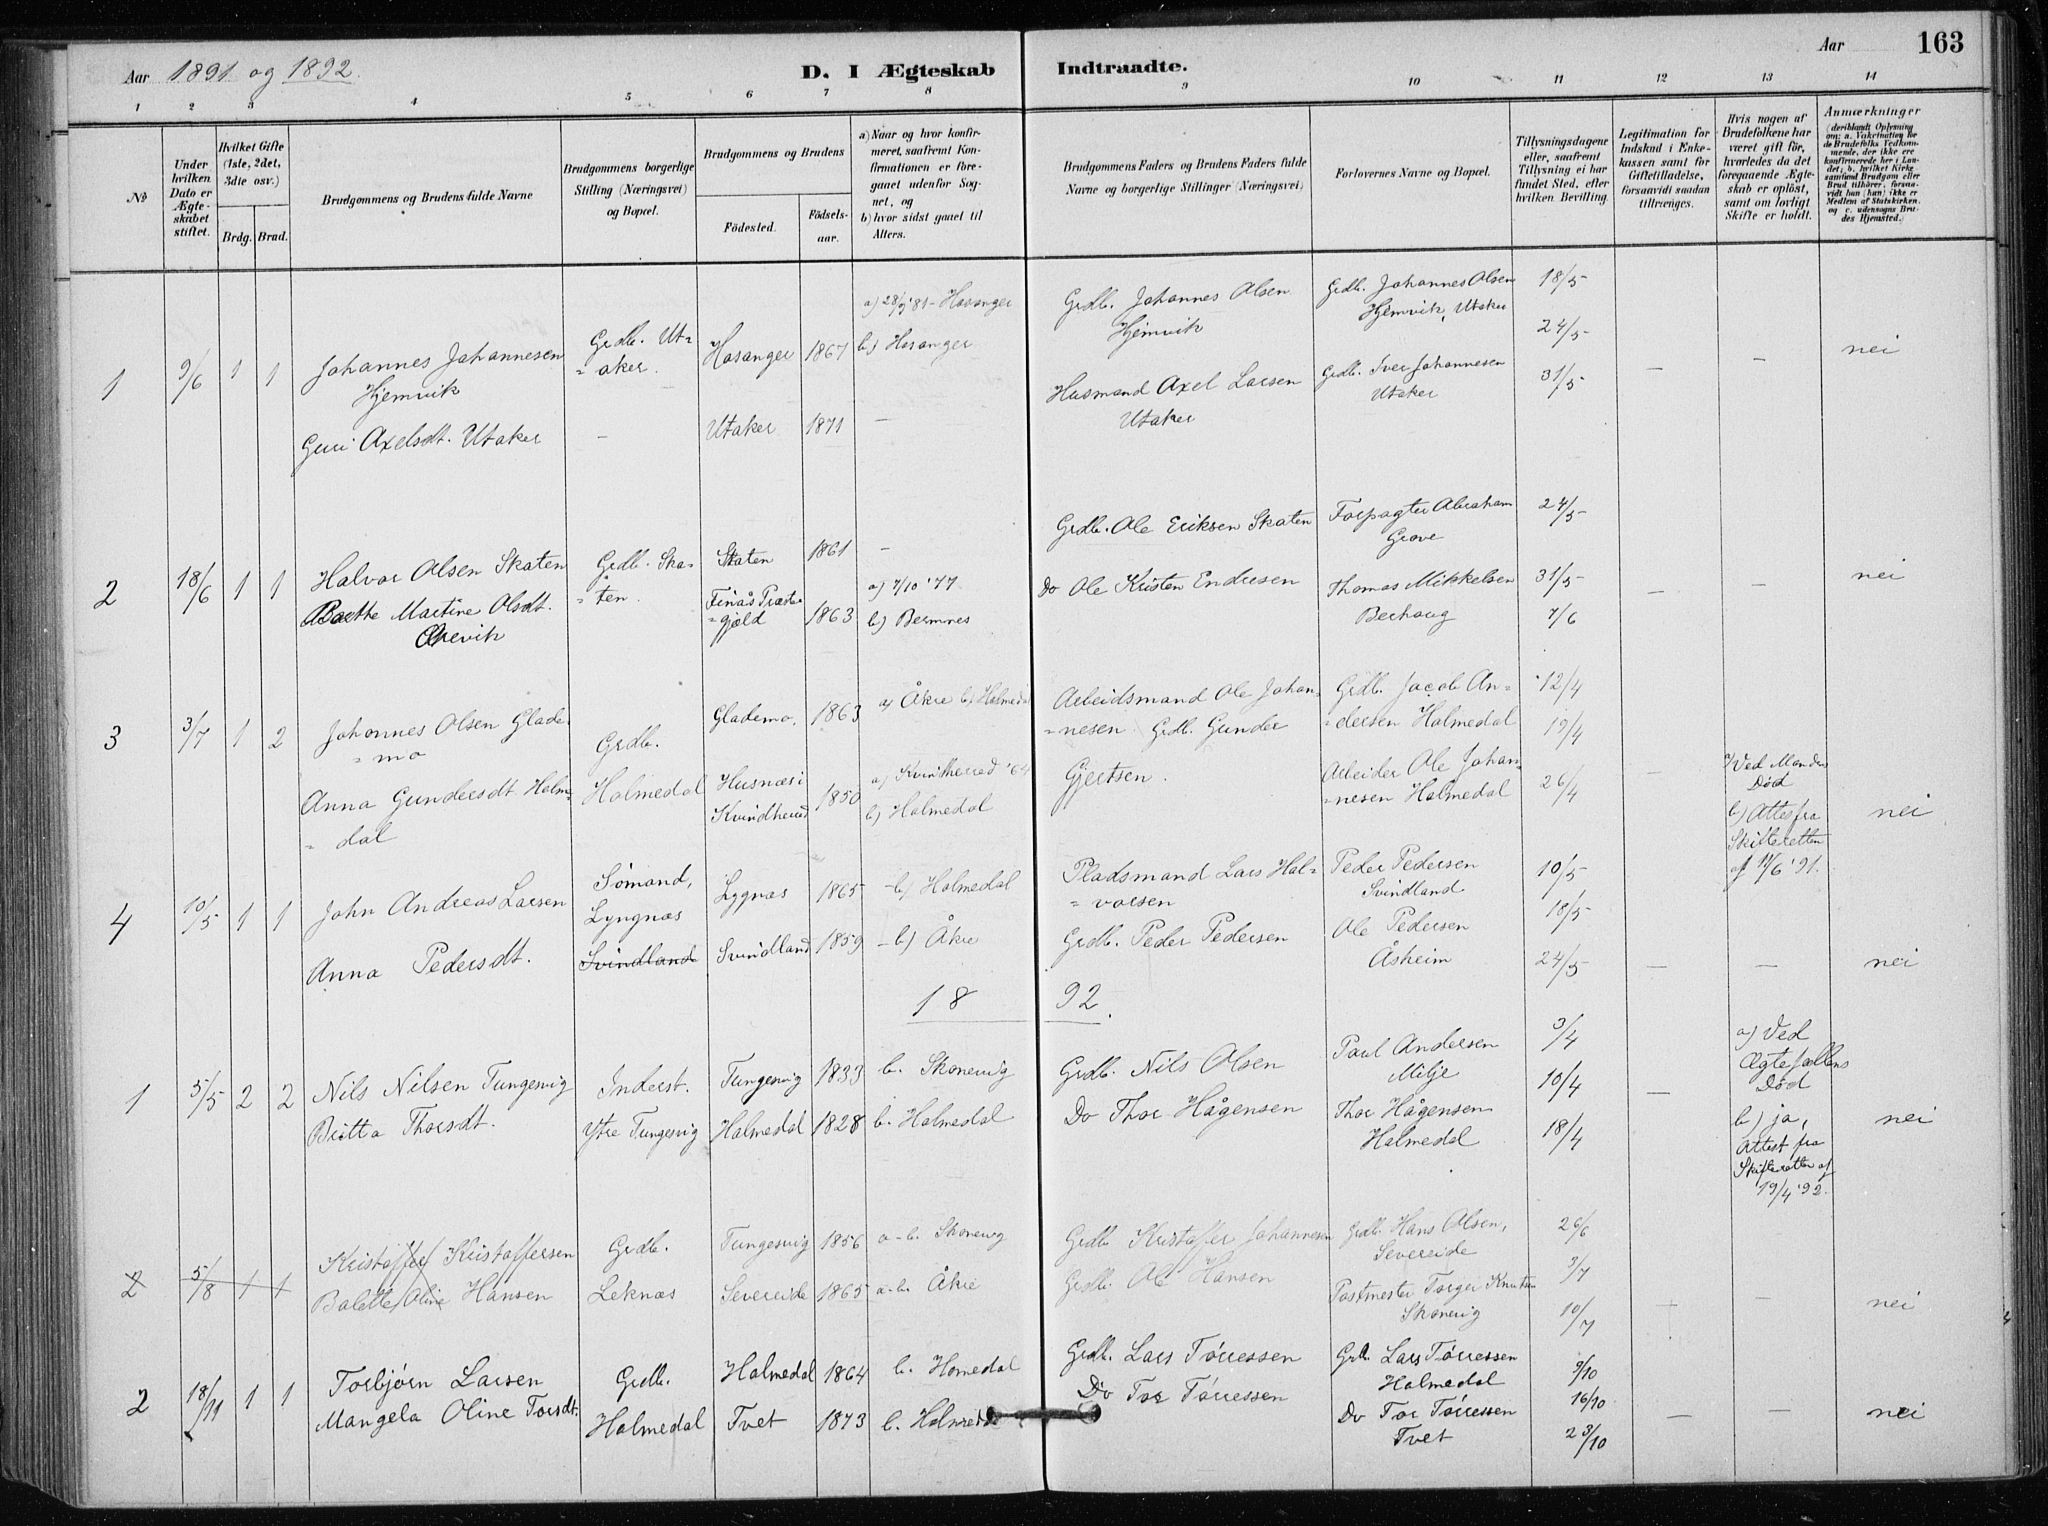 Aar 1891 og 1892.
D. I Ægteskab Indtraadte.
Aar 163
1 2 3 4 5 6 7 8 9 10 11 12 13 14
No
Under hvilken Dato er Ægteskabet stiftet.
Hvilket Gifte (1ste, 2det, 3die osv.)
Brdg. Brud.
Brudgommens og Brudens fulde Navne
Brudgommens borgerlige Stilling (Næringsvei) og Bopæl.
Brudgommens og Brudens
Födested. Födsels-aar.
a) Naar og hvor konfirmeret, saafremt Konfirmationen er foregaaet udenfor Sognet, og
b) hvor sidst gaaet til Alters.
Brudgommens Faders og Brudens Faders fulde Navne og borgerlige Stillinger (Næringsvei)
Forlovernes Navne og Bopæl.
Tillysningsdagene eller, saafremt Tillysning ei har fundet Sted, efter hvilken Bevilling.
Legitimation for Indskud i Enkekassen samt for Giftetilladelse, forsaavidt saadan tiltrænges.
Hvis nogen af Brudefolkene har været gift før, hvorledes da det foregaaende Ægteskab er oplöst, samt om lovligt Skifte er holdt.
Anmærkninger
(deriblandt Oplysning om: a. Vakcination for de Brudefolks Vedkommende, der ikke ere konfirmerede her i Landet; b. hvilket Kirkesamfund Brudgom eller Brud tilhörer, forsaavidt han (hun) ikke er Medlem af Statskirken, og c. udensogns Brudes Hjemsted.)
1 9/6 1 1
Johannes Johannesen
Hjemvik
Guri Axelsdt. Utaker
Grdb. Ut=
=aker.
–
Hosanger 1867
Utaker 1871
b) Hosanger
–
Grdb. Johannes Olsen
Hjemvik
Husmand Axel Larsen
Utaker
Grdb. Johannes Olsen
Hjemvik, Utaker
Grdb. Iver Johannesen
Utaker
18/5
24/5
31/5
– – nei
2 18/6 1 1
Halvor Olsen Skaten
Martine Olsdt.
Grdb. Ska=
=ten.
Skaten 1861
Finås Præste=
=gjeld 1863
–
a) 7/10 '77
b)
Grdb. Ole Eriksen Skaten
Do Ole Kristen Endresen
Forpagter Abraham
Grove
Thomas Mikkelsen
Berhaug
24/5
31/5
7/6
– – nei
3 3/7 1 2
Johannes Olsen Glade=
=mo
Anna Gundersdt. Holme=
=dal
Grdb.
Holmedal
Glademo, 1863
Husnæs i
Kvindherred 1850
a) Åkre b) Holmedal
a) Kvindherred '64
b) Holmedal
Arbeidsmand Ole Johan=
=nesen. Grdb. Gunder
Gjertsen.
Grdb. Jacob An=
=dersen Holmedal
Arbeider Ole Johan=
=nesen Holmedal
12/4
19/4
26/4
–
a) Ved Mandens
Död
b) Attest fra
Skifteretten
nei
4 10/5 1 1
John Andreas Larsen
Anna Pedersdt.
Sömand,
Lyngnæs
Svindland
Lygnæs 1865
Svindland 1859
– b) Holmedal
– b) Åkre
Pladsmand Lars Hal=
=vorsen
Grdb. Peder Pedersen
Peder Pedersen
Svindland
Ole Pedersen
Åsheim
10/5
18/5
24/5
– – nei
18 92.
1 5/5 2 2
Nils Nilsen Tungesvig
Britta Thorsdt.
Inderst.
Ytre Tungesvig
Tungesvig 1833
Holmedal 1828
b. Skonevig
b. Holmedal
Grdb. Nils Olsen
Do Thor Hågensen
Paul Andersen
Milje
Thor Hågensen
Holmedal
3/4
10/4
18/4
–
a) Ved
Ægtefællens
Död
b) ja,
Attest fra
Skifteretten af
19/4 '92.
nei
2 5/8 1 1
Kristoffer Kristoffersen
Bolette Oline Hansen
Grdb.
Leknæs
Tungesvig 1856
Severeide 1865
a-b. Skonevig
a-b. Åkre
Grdb. Kristoffer Johannesen
Grdb. Ole Hansen
Grdb. Hans Olsen,
Severeide
Postmester Torger Knutsen
Skonevig
26/6
3/7
10/7
– nei
2 18/11 1 1
Torbjørn Larsen
Mangela Oline Torsdt.
Grdb.
Holmedal
Holmedal 1864
Tvet 1873
b. Homedal
b. Holmedal
Grdb. Lars Tørressen
Do Tor Tørressen
Grdb. Lars Tørressen
Holmedal
Do Tor Tørressen
Tvet
9/10
16/10
23/10
– – nei